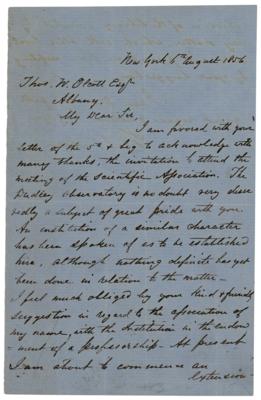 New York 6th August 1856
Thos. W. Olcott Esqr
Albany,
My Dear Sir,
I am favored with your
letter of the 5th & beg to acknowledge with
many thanks, the invitation to attend the
meeting of the Scientific Association. The
Dudley observatory is no doubt very deser
vedly a subject of great pride with you.
An institution of a similar character
has been spoken of as to be established
here, although nothing definite has yet
been done in relation to the matter—
I feel much obliged by your kind & friendly
suggestion in regard to the association of
my name, with the Institution in the endow
-ment of a professorship— At present
I am about to commence an
extension